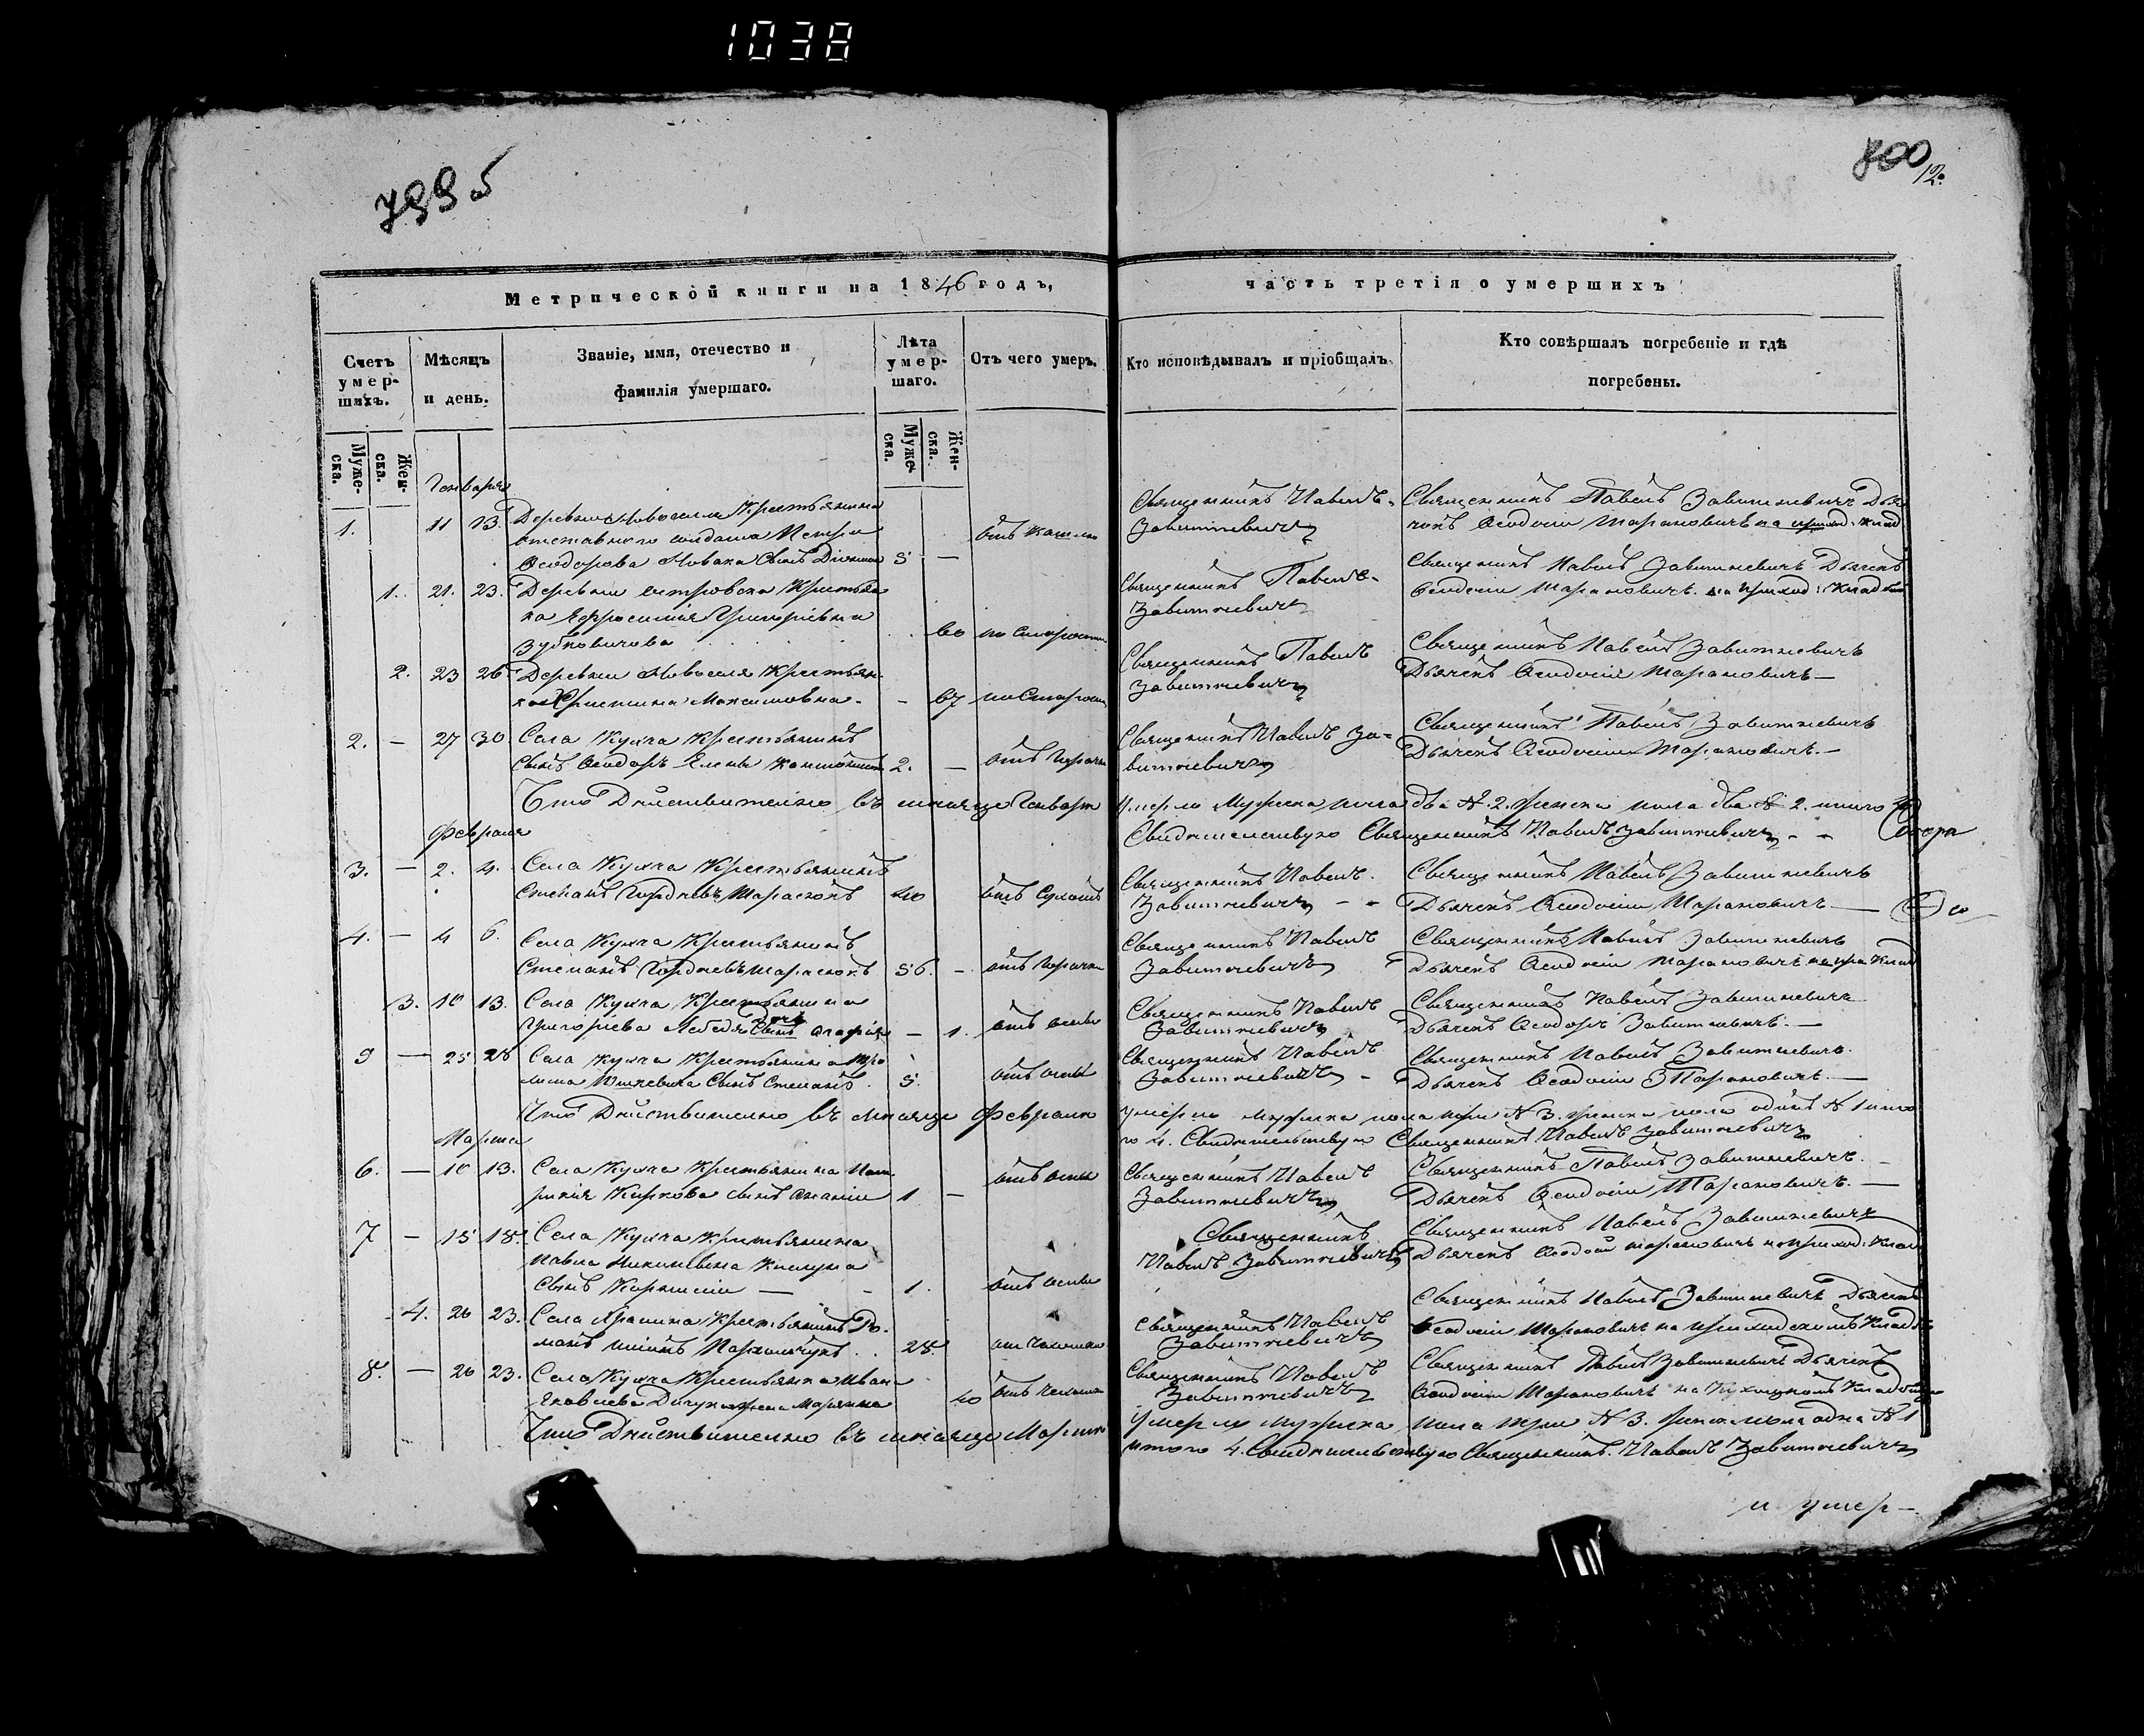 1038
799 б
800
12.
Метрической книги на 1846 годъ,
часть третія о умершихъ
Счетъ умер-шихъ.
Мѣсяцъ и день.
Званіе, имя, отечество и фамилія умершаго.
Лѣта умер-шаго.
Отъ чего умеръ.
Кто исповѣдывалъ и пріобщалъ.
Кто совершалъ погребеніе и гдѣ погребены.
Муже-ска.
Жен-ска.
Муже-ска.
Жен-ска.
Генваря
1. 11 13. Деревни Новоселя Крестьянина
отставного солдата Петра
Ѳеодорова Новака сынъ 5 — отъ кашлю
Священникъ Павелъ
Завитневичъ
Священникъ Павелъ Завитневичъ Дья
чекъ Ѳеодосій Тарановичъ на приход: клад
1. 21. 23. Деревни Крестьян
ка Ефросинія Григоріевна
Зубковичова 60 по старости
Священникъ Павелъ
Завитневичъ
Священникъ Павелъ Завитневичъ Дьячекъ
Ѳеодосій Тарановичъ на приход: кладби
2. 23 26 Деревни Новоселя Крестьян
ка Христина Максимовна - - 67 по старости
Священникъ Павелъ
Завитневичъ
Священникъ Павелъ Завитневичъ
Дьячекъ Ѳеодосій Тарановичъ —
2. — 27 30. Села Кухча Крестьянинъ
сынъ Ѳеодоръ Елены 2. — отъ горячки
Священникъ Павелъ За-
витневичъ
Священникъ Павелъ Завитневичъ
Дьячекъ Ѳеодосій Тарановичъ —
Что Дѣйствительно въ мѣсяце Генваре умерло Мужска пола два № 2. женска пола два № 2. итого
Свидѣтельствую Священникъ Павелъ Завитневичъ
Февраля
3. — 2. 4. Села Кухча Крестьянинъ
Степанъ Гордіевъ Тарасюкъ 40 отъ сухотъ
Священникъ Павелъ
Завитневичъ
Священникъ Павелъ Завитневичъ
Дьячекъ Ѳеодосій Тарановичъ —
4. — 4 6. Села Кухча Крестьянинъ
Степанъ Гордіевъ Тарасюкъ 56. — отъ горячки
Священникъ Павелъ
Завитневичъ
Священникъ Павелъ Завитневичъ
Дьячекъ Ѳеодосій Тарановичъ на при клад
3. 10 13. Села Кухча Крестьянина
Григоріева Лебедя сынъ дочь Агафія — 1. отъ оспы
Священникъ Павелъ
Завитневичъ
Священникъ Павелъ Завитневичъ
Дьячекъ Ѳеодоръ Завитневичъ —
5 — 25 28 Села Кухча Крестьянина Тро
сынъ Степанъ 5. отъ оспы
Священникъ Павелъ
Завитневичъ
Священникъ Павелъ Завитневичъ
Дьячекъ Ѳеодосій Тарановичъ —
Что Дѣйствительно въ мѣсяце Феврале умерло мужска пола три № 3. женска пола одинъ № 1 ито
го 4. Свидѣтельствую Священникъ Павелъ Завитневичъ
Марта
6. — 10 13. Села Кухча Крестьянина
Киркова сынъ Ананій 1 — отъ оспы
Священникъ Павелъ
Завитневичъ
Священникъ Павелъ Завитневичъ
Дьячекъ Ѳеодосій Тарановичъ —
7 — 15 18. Села Кухча Крестьянина
Павла
сынъ 1. отъ оспы
Священникъ
Павелъ Завитневичъ
Священникъ Павелъ Завитневичъ
Дьячекъ Ѳеодосій Тарановичъ на приход: клад
4. 20 23. Села Крестьянинъ Ро
манъ 28.
Священникъ Павелъ
Завитневичъ
Священникъ Павелъ Завитневичъ Дьячекъ
Ѳеодосій Тарановичъ на приходскомъ кладб
8. — 20 23. Села Кухча Крестьянка Ивана
Яковлева жена Маріянна 40
Священникъ Павелъ
Завитневичъ
Священникъ Павелъ Завитневичъ Дьячекъ
Ѳеодосій Тарановичъ на Кухчицкомъ кладбище
Что Дѣйствительно въ мѣсяце Марте умерло мужска пола три № 3. женска пола одна № 1
итого 4. Свидѣтельствую Священникъ Павелъ Завитневичъ
и умер —